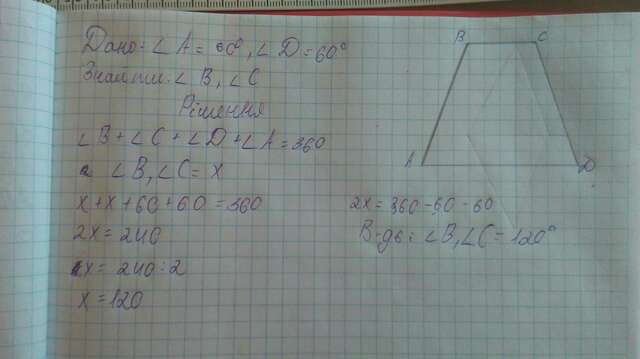 Дано: ∠A = 60°, ∠D = 60°
Знайти: ∠B, ∠C
Рішення
∠B + ∠C + ∠D + ∠A = 360
∠B, ∠C = x
x + x + 60 + 60 = 360
2x = 240
x = 240 : 2
x = 120
2x = 360 - 60 - 60
В-дь: ∠B, ∠C = 120°
B C
A D